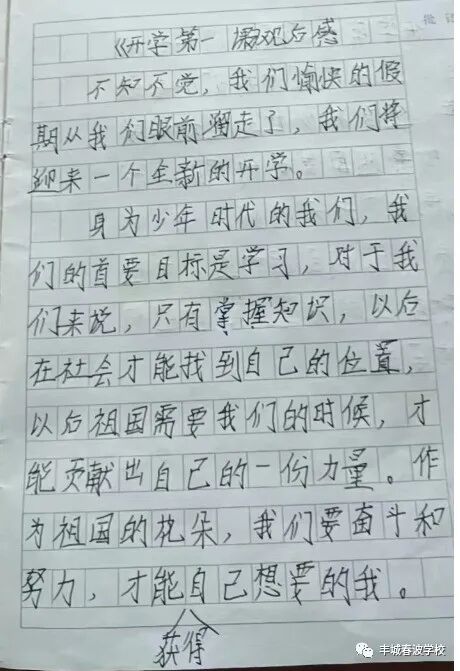 《开学第一课观后感
不知不觉，我们愉快的假
期从我们眼前溜走了，我们将
迎来一个全新的开学。
身为少年时代的我们，我
们的首要目标是学习，对于我
们来说，只有掌握知识，以后
在社会才能找到自己的位置，
以后祖国需要我们的时候，才
能贡献出自己的一份力量。作
为祖国的花朵，我们要奋斗和
努力，才能自己想要的我。
获得
丰城春波学校